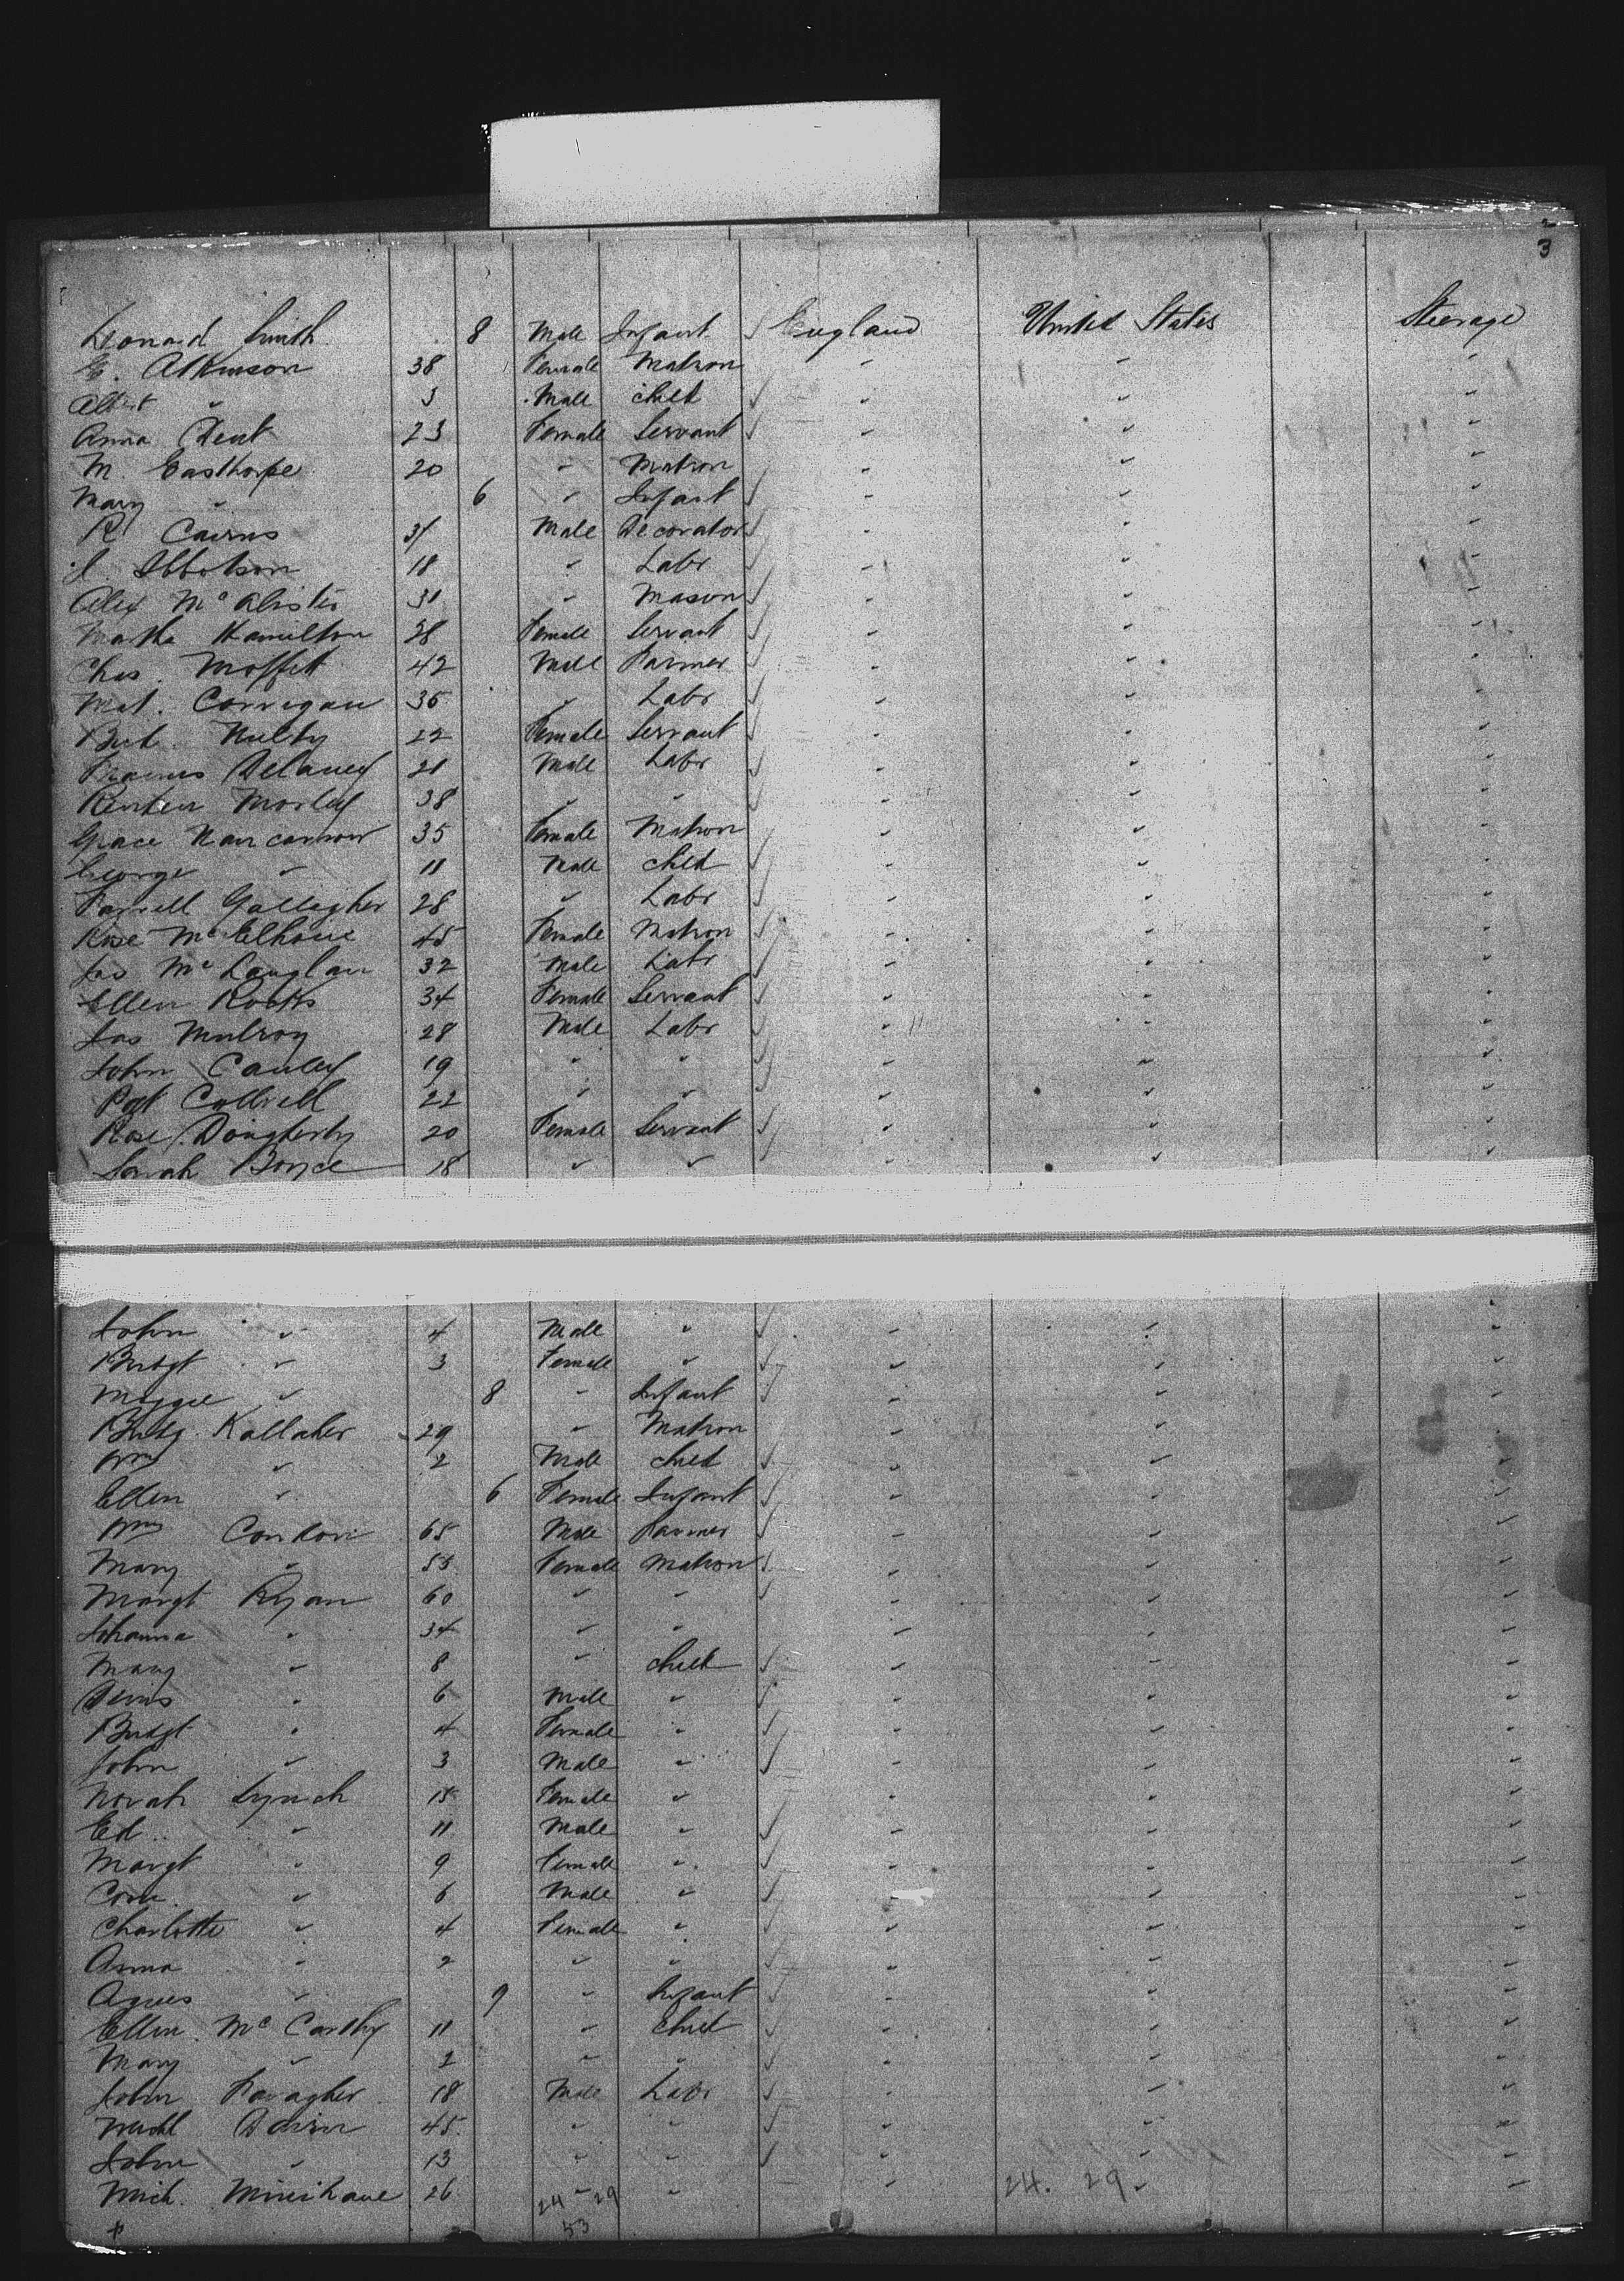 3
Leonard Smith 8 Male Infant England United States Steerage
E. Atkinson 38 Female Matron " " "
Albert " 3 Male child " " "
Anna Dent 23 Female Servant " " "
M. Easthorpe 20 " Matron " " "
Mary " 6 " Infant " " "
R Cairns 31 Male Decorator " " "
J. Ibbotson 18 " Labr " " "
Alex McAlister 31 " Mason " " "
Martha Hamilton 28 Female Servant " " "
Chas. Moffett 42 Male Farmer " " "
Mat. Corrigan 36 " Labr " " "
Nulty 22 Female Servant " " "
Francis Delaney 21 Male Labr " " "
Reuben Morley 38 " " " " "
Grace Nancarrow 35 Female Matron " " "
George " 11 Male child " " "
Farrell Gallagher 28 " Labr " " "
Rose Mc 45 Female Matron " " "
Jas Mc Lauglan 32 Male Labr " " "
Ellen Rooks 34 Female Servant " " "
Jas Mulroy 28 Male Labr " " "
John Cauley 19 " " " " "
Pat 22 " " " " "
Rose Dougherty 20 Female Servant " " "
Sarah Boyce 18 " " " " "
John " 4 Male " " " "
Bridgt " 3 Female " " " "
Maggie " 8 " Infant " " "
Bridg. Kallaher 29 " Matron " " "
Wm " 2 Male child " " "
Ellen " 6 Female Infant " " "
Wm Condon 65 Male Farmer " " "
Mary " 55 Female Matron " " "
Margt Ryan 60 " " " " "
Johanna " 34 " " " " "
Mary " 8 " child " " "
Denis " 6 Male " " " "
Bridgt " 4 Female " " " "
John " 3 Male " " " "
Norah Lynch 15 Female " " " "
Ed. " 11 Male " " " "
Margt " 9 Female " " " "
Corn. " 6 Male " " " "
Charlotte " 4 Female " " " "
Anna " 2 " " " " "
Agnes " 9 " Infant " " "
Ellen Mc Carthy 11 " child " " "
Mary " 2 " " " " "
John Faragher 18 Male Labr " " "
Michl 45 " " " " "
John " 13 " " " " "
Mich. Minihane 26 " " " " "
24 29 24. 29
53